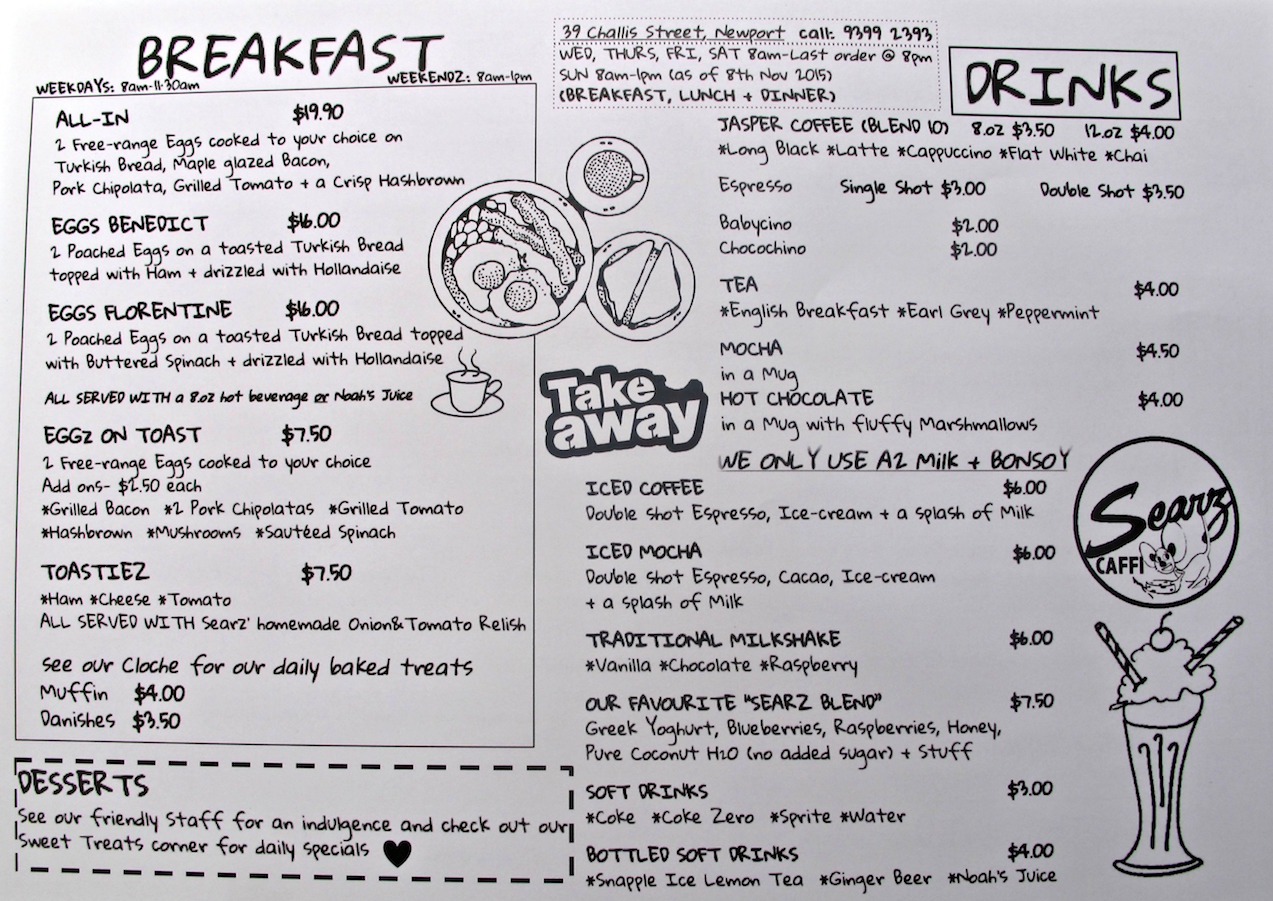 BREAKFAST
WEEKDAYS: 8am-11.30am
WEEKENDZ: 8am-1pm
ALL-IN $19.90
2 Free-range Eggs cooked to your choice on
Turkish Bread, Maple glazed Bacon,
Pork Chipolata, Grilled Tomato + a Crisp Hashbrown
EGGS BENEDICT $16.00
2 Poached Eggs on a toasted Turkish Bread
topped with Ham + drizzled with Hollandaise
EGGS FLORENTINE $16.00
2 Poached Eggs on a toasted Turkish Bread topped
with Buttered Spinach + drizzled with Hollandaise
ALL SERVED WITH a 8.oz hot beverage or Noah's Juice
EGGZ ON TOAST $7.50
2 Free-range Eggs cooked to your choice
Add ons- $2.50 each
*Grilled Bacon *2 Pork Chipolatas *Grilled Tomato
*Hashbrown *Mushrooms *Sautéed Spinach
TOASTIEZ $7.50
*Ham *Cheese *Tomato
ALL SERVED WITH Searz' homemade Onion&Tomato Relish
see our Cloche for our daily baked treats
Muffin $4.00
Danishes $3.50
DESSERTS
See our friendly Staff for an indulgence and check out our
Sweet Treats corner for daily specials
39 Challis Street, Newport call: 9399 2393
WED, THURS, FRI, SAT 8am-Last order @ 8pm
SUN 8am-1pm (as of 8th Nov 2015)
(BREAKFAST, LUNCH + DINNER)
Take
away
DRINKS
JASPER COFFEE (BLEND 10) 8.oz $3.50 12.oz $4.00
*Long Black *Latte *Cappuccino *Flat White *Chai
Espresso Single Shot $3.00 Double Shot $3.50
Babycino $2.00
Chocochino $2.00
TEA $4.00
*English Breakfast *Earl Grey *Peppermint
MOCHA $4.50
in a Mug
HOT CHOCOLATE $4.00
in a Mug with fluffy Marshmallows
WE ONLY USE A2 Milk + BONSOY
ICED COFFEE $6.00
Double shot Espresso, Ice-cream + a splash of Milk
ICED MOCHA $6.00
Double shot Espresso, Cacao, Ice-cream
+ a splash of Milk
TRADITIONAL MILKSHAKE $6.00
*Vanilla *Chocolate *Raspberry
OUR FAVOURITE "SEARZ BLEND" $7.50
Greek Yoghurt, Blueberries, Raspberries, Honey,
Pure Coconut H2O (no added sugar) + Stuff
SOFT DRINKS $3.00
*Coke *Coke Zero *Sprite *Water
BOTTLED SOFT DRINKS $4.00
*Snapple Ice Lemon Tea *Ginger Beer *Noah's Juice
Searz
CAFFI